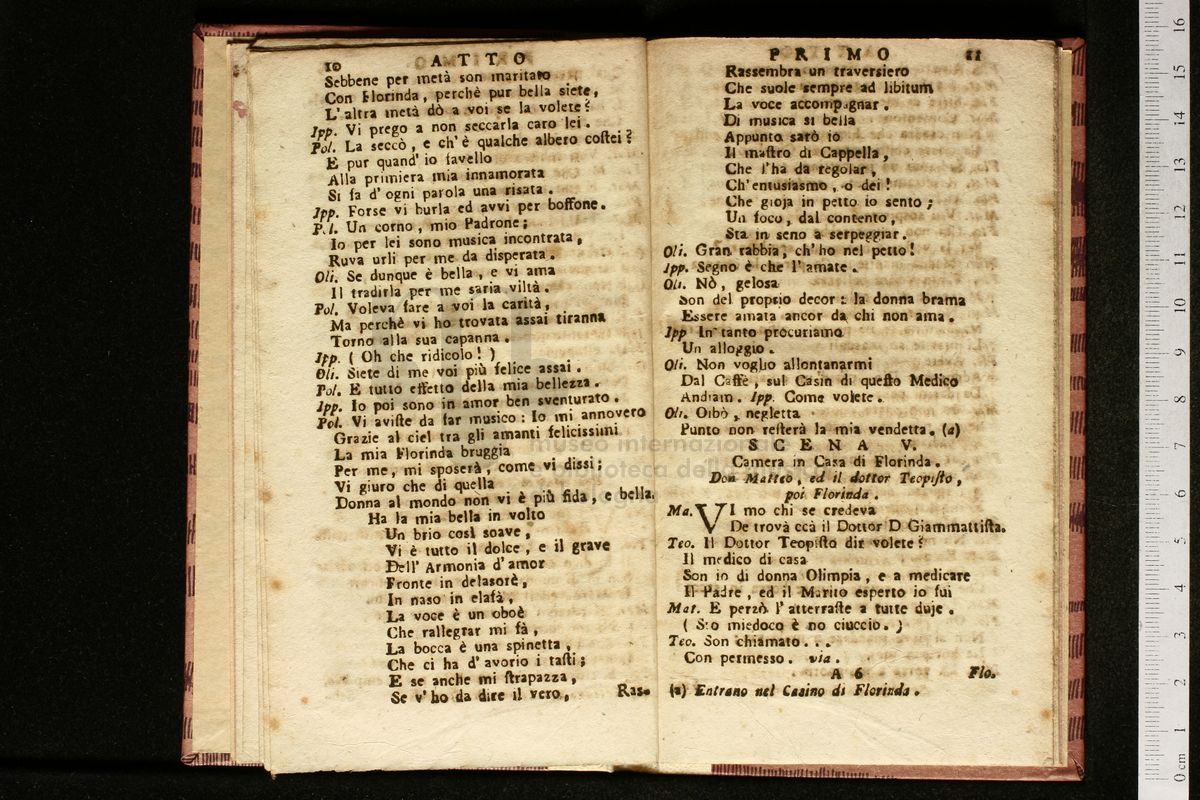 10 ATTO
Sebbene per metà son maritato
Con Florinda, perchè pur bella siete,
L'altra metà dò a voi se la volete?
Ipp. Vi prego a non seccarla caro lei.
Pol. La seccò, e ch'è qualche albero costei?
E pur quand' io favello
Alla primiera mia innamorata
Si fa d'ogni parola una risata.
Ipp. Forse vi burla ed avvi per boffone.
Pol. Un corno, mio Padrone;
Io per lei sono musica incontrata,
Ruva urli per me da disperata.
Oli. Se dunque è bella, e vi ama
Il tradirla per me saria viltà.
Pol. Voleva fare a voi la carità,
Ma perchè vi ho trovata assai tiranna
Torno alla sua capanna.
Ipp. ( Oh che ridicolo! )
Oli. Siete di me voi più felice assai.
Pol. E tutto effetto della mia bellezza.
Ipp. Io poi sono in amor ben sventurato.
Pol. Vi aviste da far musico: Io mi annovero
Grazie al ciel tra gli amanti felicissimi
La mia Florinda bruggia
Per me, mi sposerà, come vi dissi;
Vi giuro che di quella
Donna al mondo non vi è più fida, e bella.
Ha la mia bella in volto
Un brio così soave,
Vi è tutto il dolce, e il grave
Dell' Armonia d'amor
Fronte in delasorè,
In naso in elafà,
La voce è un oboè
Che rallegrar mi fà,
La bocca è una spinetta,
Che ci ha d'avorio i tasti;
E se anche mi strapazza,
Se v'ho da dire il vero,
Ras-
PRIMO 11
Rassembra un traversiero
Che suole sempre ad libitum
La voce accompagnar.
Di musica si bella
Appunto sarò io
Il mastro di Cappella,
Che l'ha da regolar,
Ch'entusiasmo, o dei!
Che gioja in petto io sento;
Un foco, dal contento,
Sta in seno a serpeggiar.
Oli. Gran rabbia, ch'ho nel petto!
Ipp. Segno è che l'amate.
Oli. Nò, gelosa
Son del proprio decor: la donna brama
Essere amata ancor da chi non ama.
Ipp In tanto procuriamo
Un alloggio.
Oli. Non voglio allontanarmi
Dal Caffè, sul Casin di questo Medico
Andiam. Ipp. Come volete.
Oli. Oibò, negletta
Punto non resterà la mia vendetta. (a)
SCENA V.
Camera in Casa di Florinda.
Don Matteo, ed il dottor Teopisto,
poi Florinda.
Ma. VI mo chi se credeva
De trovà ccà il Dottor D Giammattista.
Teo. Il Dottor Teopisto dir volete?
Il medico di casa
Son io di donna Olimpia, e a medicare
Il Padre, ed il Marito esperto io fui
Mat. E perzò l'atterraste a tutte duje.
( Sto miedoco è no ciuccio. )
Teo. Son chiamato...
Con permesso. via.
A 6 Flo.
(a) Entrano nel Casino di Florinda.
museo internazionale
biblioteca della